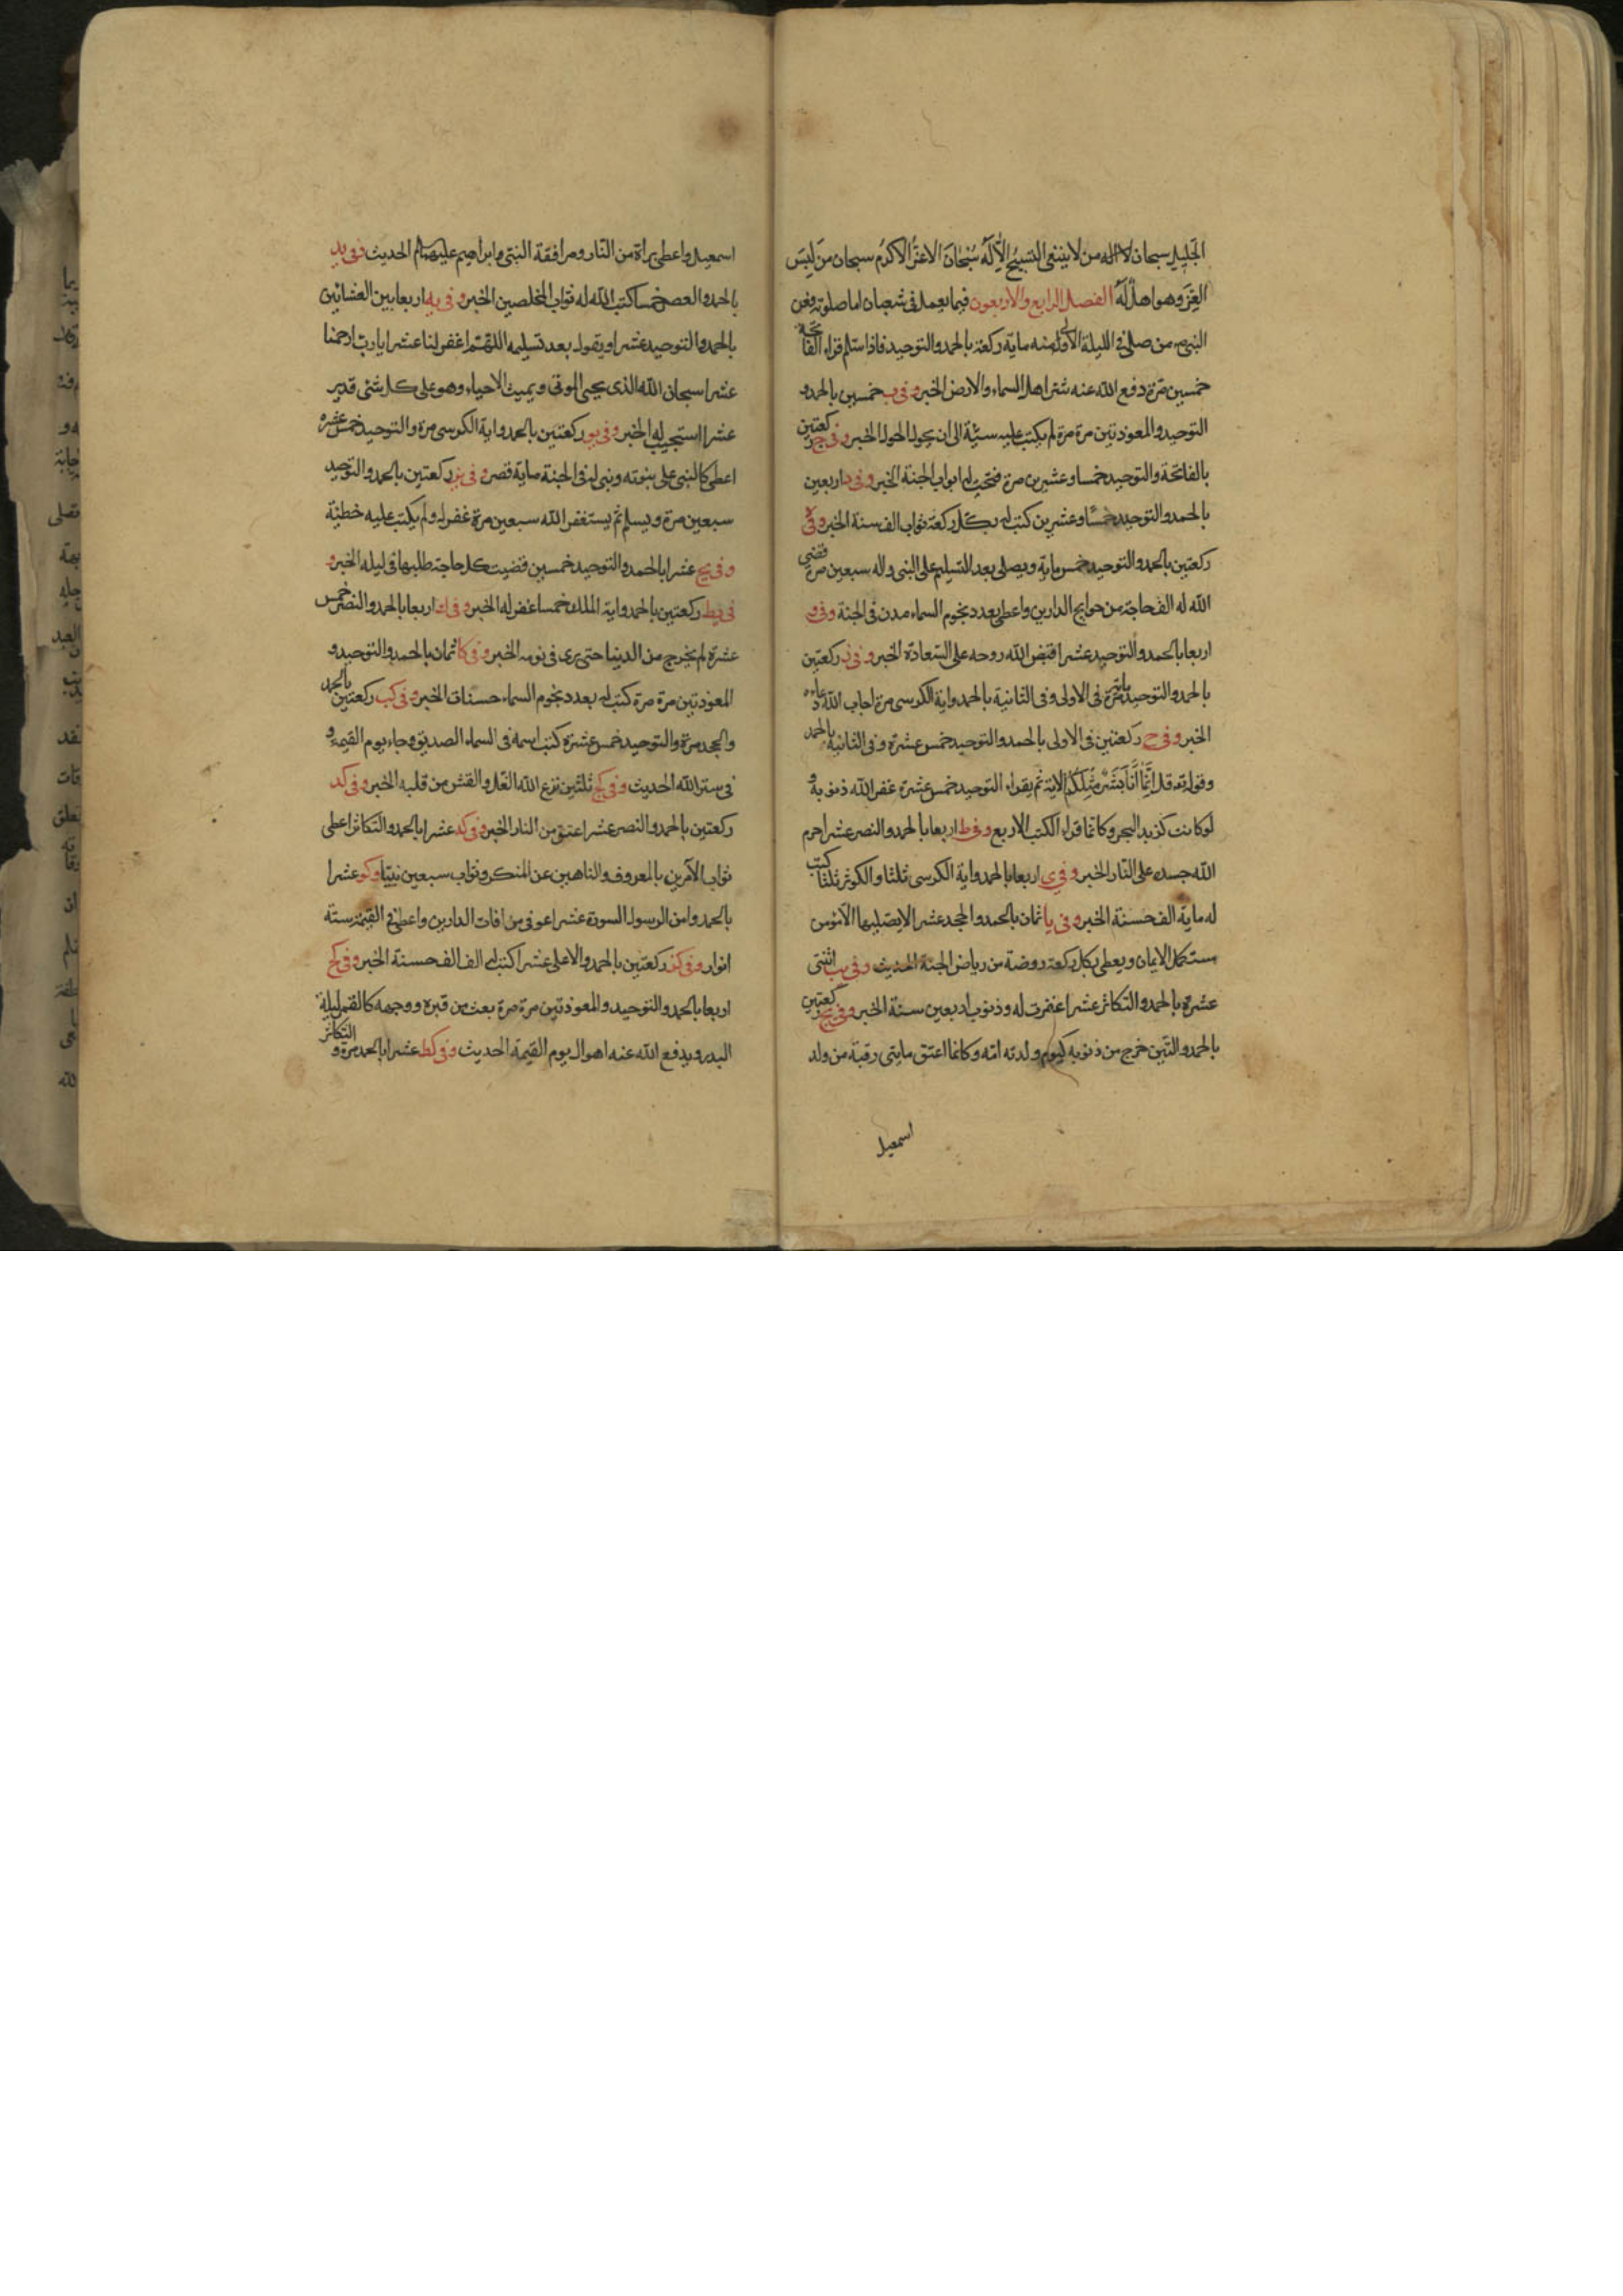 الجَلِيلِ سبحان الاله من لا ينبغى التسبيح الا لَهُ سُبْحَانَ الاعَزِّ الاكرَمِ سبحان مَن لَبِسَ
العِزَّ وهو اهلٌ لَهُ الفصل الرابع والاربعون فيما يعمل فى شعبان اما صلوته فعن
النبى ص من صلى فى الليلة الاولى منه ماية ركعة بالحمد والتوحيد فاذا سلم قراء الفاتحة
خمسين مرة دفع الله عنه شر اهل السماء والارض الخبر وفى ب خمسين بالحمد و
التوحيد والمعوذتين مرة مرة لم يكتب عليه سيئة الى ان يحول الحول الخبر وفى ج ركعتين
بالفاتحة والتوحيد خمسا وعشرين مرة فتحت له ابواب الجنة الخبر وفى د اربعين
بالحمد والتوحيد خمسًا وعشرين كتب له بكل ركعة ثواب الف سنة الخبر وفى ه
ركعتين بالحمد والتوحيد خمس ماية ويصلى بعد التسليم على النبى واله سبعين مرة قضى
الله له الف حاجة من حوايج الدارين واعطى بعدد نجوم السماء مدن فى الجنة وفى و
اربعا بالحمد والتوحيد عشرا قبض الله روحه على السعادة الخبر وفى ز ركعتين
بالحمد والتوحيد ماية مرة فى الاولى وفى الثانية بالحمد واية الكرسى مرة اجاب الله دعاءه
الخبر وفى ح ركعتين فى الاولى بالحمد والتوحيد خمس عشرة وفى الثانية بالحمد
وقوله تع قل إِنَّمَا أَنَا بَشَرٌ مِثْلُكُمْ الاية ثم يقراء التوحيد خمس عشرة غفر الله ذنوبه و
لو كانت كزبد البحر وكانما قراء الكتب الاربع وفى ط اربعا بالحمد والنصر عشرا حرم
الله جسده على النار الخبر وفى ى اربعا بالحمد واية الكرسى ثلثا والكوثر ثلثا كتب
له ماية الف حسنة الخبر وفى يا ثمان بالحمد والجحد عشرا لا يصليها الا مؤمن
مستكمل الايمان ويعطى بكل ركعة روضة من رياض الجنة الحديث وفى يب اثنتى
عشرة بالحمد والتكاثر عشرا غفرت له ذنوب اربعين سنة الخبر وفى يج ركعتين
بالحمد والتين خرج من ذنوبه كيوم ولدته امه وكانما اعتق مايتى رقبة من ولد
اسمعيل
اسمعيل واعطى براة من النار ومرافقة النبى وابراهيم عليهما السلام الحديث وفى يد
بالحمد والعصر خمسا كتب الله له ثواب المخلصين الخبر وفى يه اربعا بين العشائين
بالحمد والتوحيد عشرا ويقول بعد تسليمه اللهم اغفر لنا عشرا يا رب ارحمنا
عشرا سبحان الله الذى يحيى الموتى ويميت الاحياء وهو على كل شئ قدير
عشرا استجيب له الخبر وفى يو ركعتين بالحمد واية الكرسى مرة والتوحيد خمس عشرة
اعطى كالنبى على نبوته وبنى له فى الجنة ماية قصر وفى يز ركعتين بالحمد والتوحيد
سبعين مرة ويسلم ثم يستغفر الله سبعين مرة غفر له ولم يكتب عليه خطيئة
وفى يح عشرا بالحمد والتوحيد خمسين قضيت كل حاجة طلبها فى ليله الخبر و
فى يط ركعتين بالحمد واية الملك خمسا غفر له الخبر وفى ك اربعا بالحمد والنصر خمس
عشرة لم يخرج من الدنيا حتى يرى فى نومه الخبر وفى كا ثمان بالحمد والتوحيد و
المعوذتين مرة مرة كتب له بعدد نجوم السماء حسنات الخبر وفى كب ركعتين بالحمد
والجحد مرة والتوحيد خمس عشرة كتب اسمه فى السماء الصديق وجاء يوم القيمة و
فى ستر الله الحديث وفى كج ثلثين نزع الله الغل والغش من قلبه الخبر وفى كد
ركعتين بالحمد والنصر عشرا عتق من النار الخبر وفى كه عشرا بالحمد والتكاثر اعطى
ثواب الآمرين بالمعروف والناهين عن المنكر وثواب سبعين نبيا وكو عشرا
بالحمد وامن الرسول السورة عشرا عوفى من افات الدارين واعطى فى القيمة ستة
انوار وفى كز ركعتين بالحمد والاعلى عشرا كتب له الف الف حسنة الخبر وفى كح
اربعا بالحمد والتوحيد والمعوذتين مرة مرة بعث من قبره ووجهه كالقمر ليلة
البدر ويدفع الله عنه اهوال يوم القيمة الحديث وفى كط عشرا بالحمد مرة و التكاثر